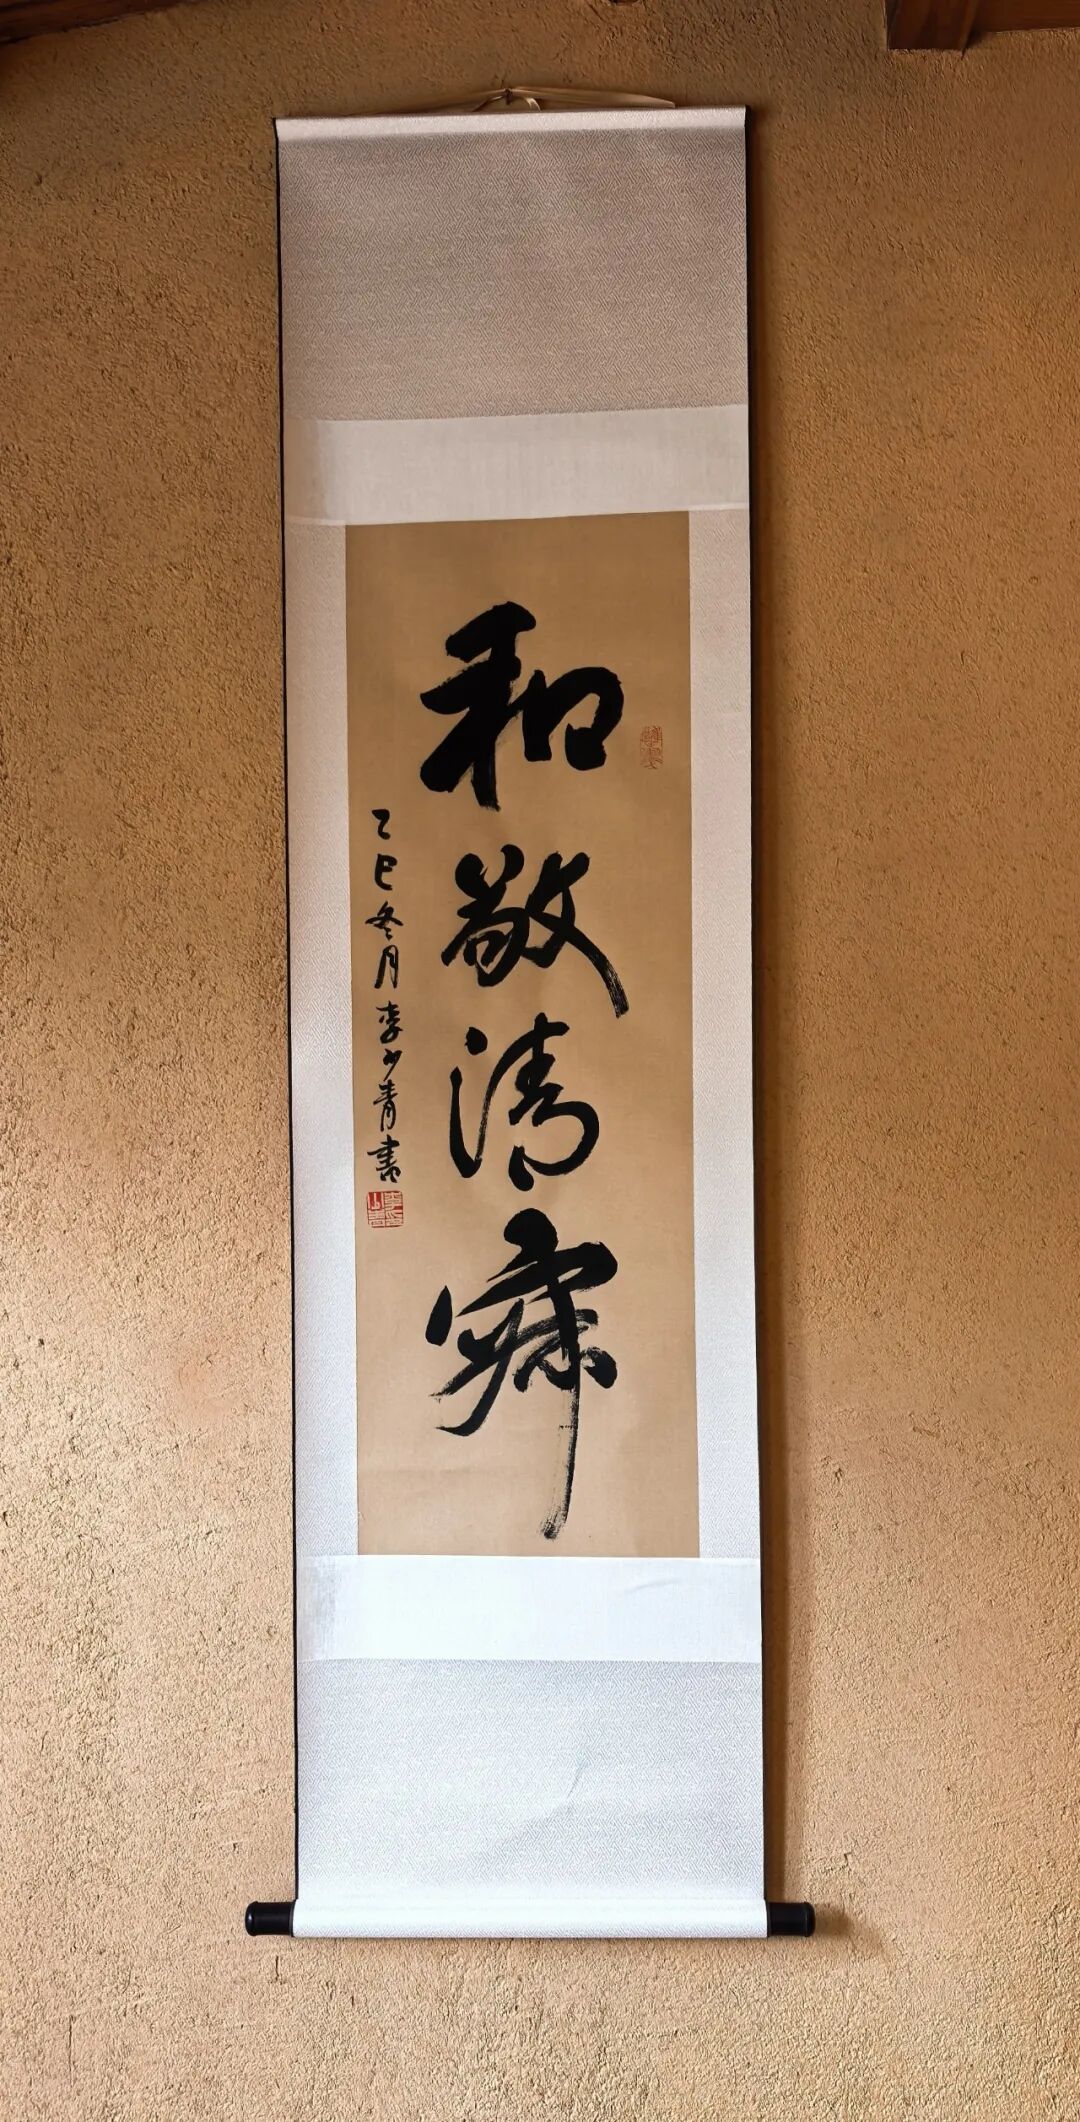 和敬清寂
乙巳冬月李少青書